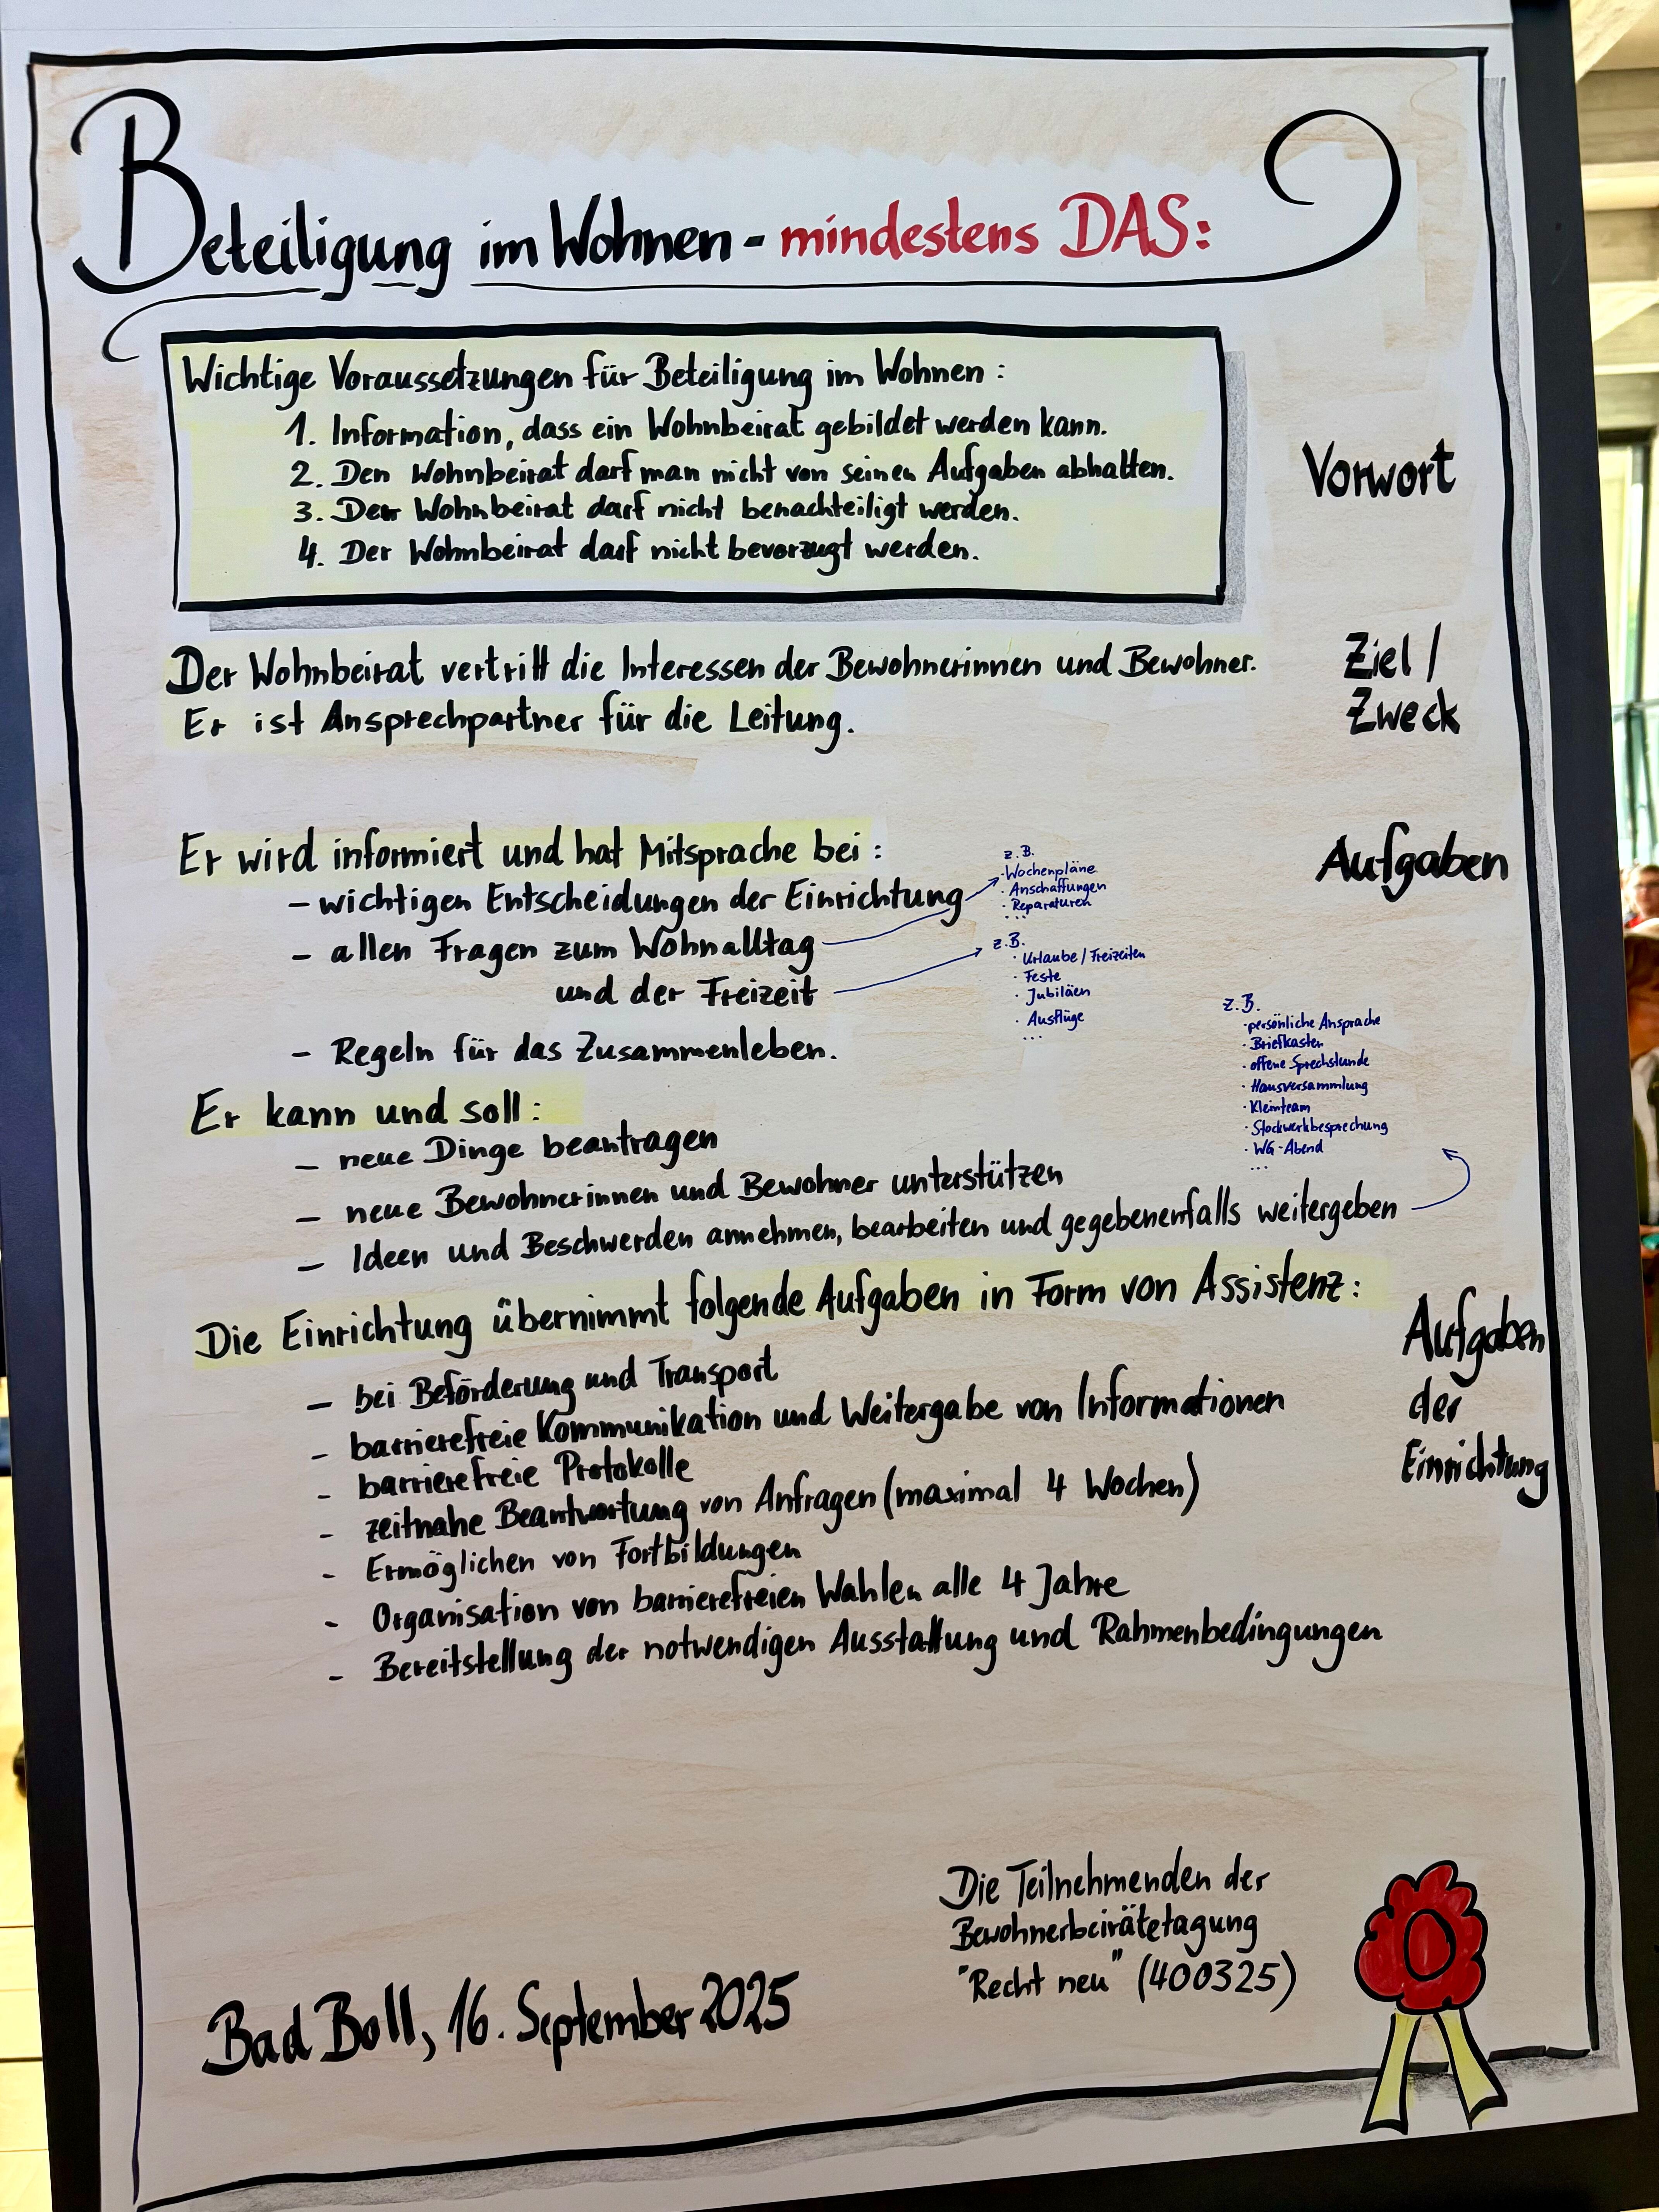 Beteiligung im Wohnen - mindestens DAS:
Wichtige Voraussetzungen für Beteiligung im Wohnen:
1. Information, dass ein Wohnbeirat gebildet werden kann.
2. Den Wohnbeirat darf man nicht von seinen Aufgaben abhalten.
3. Der Wohnbeirat darf nicht benachteiligt werden.
4. Der Wohnbeirat darf nicht bevorzugt werden.
Vorwort
Der Wohnbeirat vertritt die Interessen der Bewohnerinnen und Bewohner.
Er ist Ansprechpartner für die Leitung.
Ziel /
Zweck
Er wird informiert und hat Mitsprache bei:
- wichtigen Entscheidungen der Einrichtung
- allen Fragen zum Wohnalltag
und der Freizeit
- Regeln für das Zusammenleben.
z.B.
· Wochenpläne
· Anschaffungen
· Reparaturen
...
z.B.
· Urlaube / Freizeiten
· Feste
· Jubiläen
· Ausflüge
...
Aufgaben
Er kann und soll:
- neue Dinge beantragen
- neue Bewohnerinnen und Bewohner unterstützen
- Ideen und Beschwerden annehmen, bearbeiten und gegebenenfalls weitergeben
z.B.
· persönliche Ansprache
· Briefkasten
· offene Sprechstunde
· Hausversammlung
· Kleinteam
· Stockwerkbesprechung
· WG-Abend
...
Die Einrichtung übernimmt folgende Aufgaben in Form von Assistenz:
- bei Beförderung und Transport
- barrierefreie Kommunikation und Weitergabe von Informationen
- barrierefreie Protokolle
- zeitnahe Beantwortung von Anfragen (maximal 4 Wochen)
- Ermöglichen von Fortbildungen
- Organisation von barrierefreien Wahlen alle 4 Jahre
- Bereitstellung der notwendigen Ausstattung und Rahmenbedingungen
Aufgaben
der
Einrichtung
Die Teilnehmenden der
Bewohnerbeirätetagung
"Recht neu" (400325)
Bad Boll, 16. September 2025